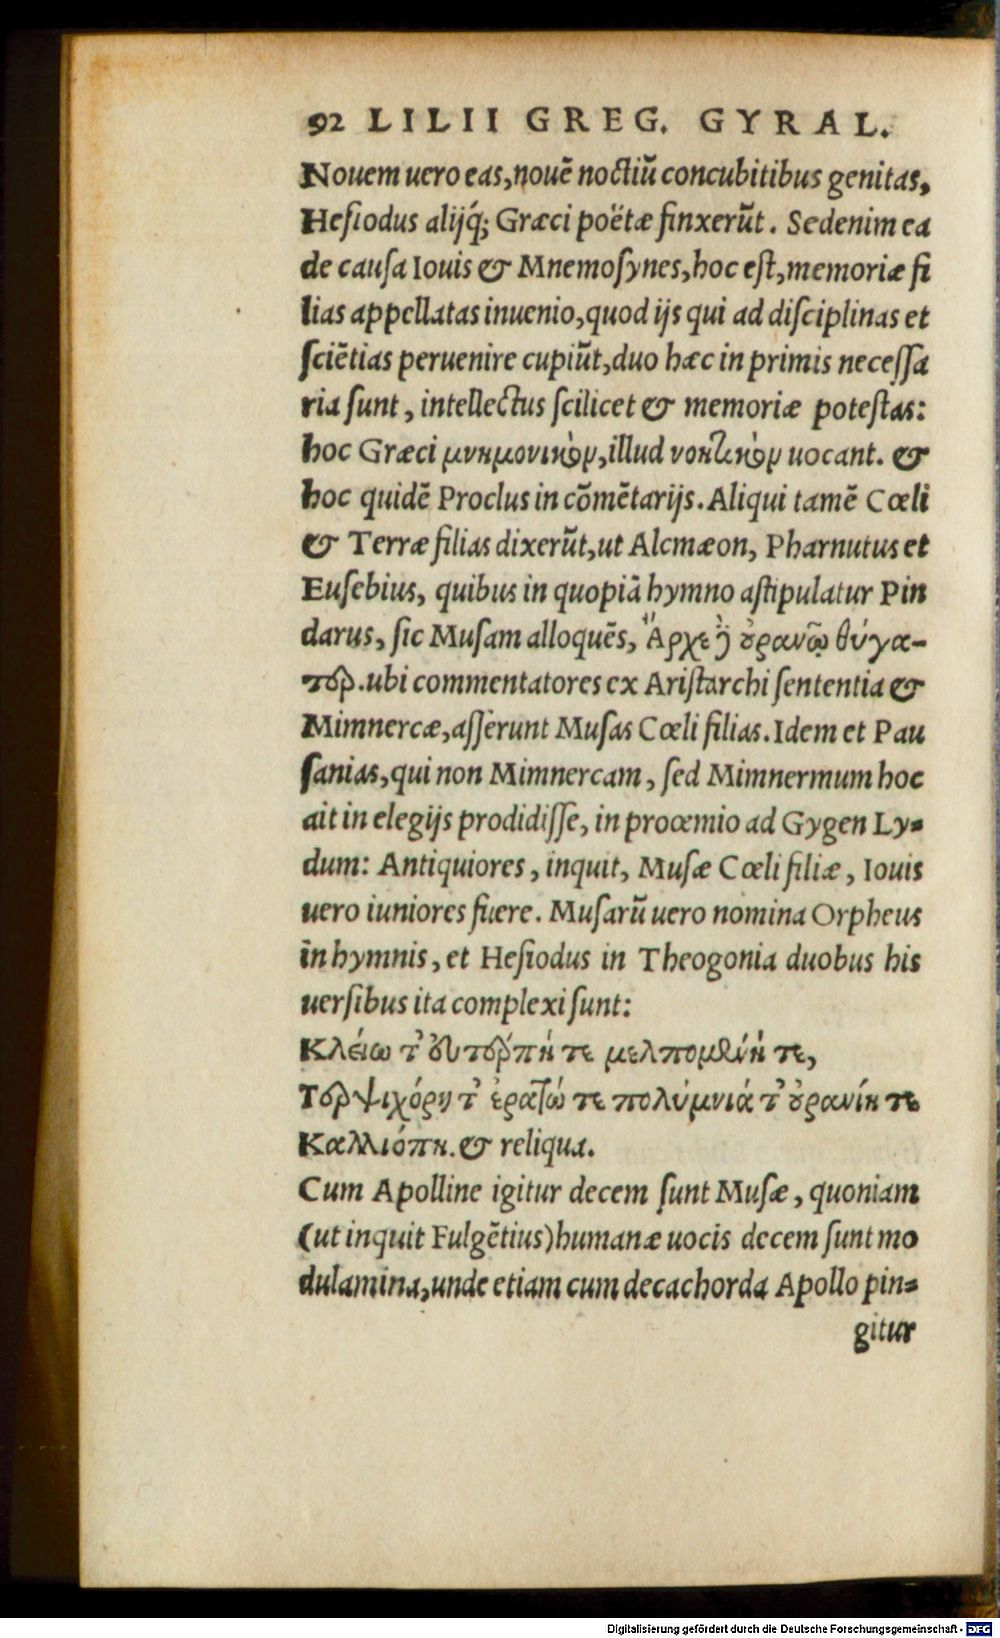 92 LILII GREG. GYRAL.
Nouem uero eas, nouē noctiū concubitibus genitas,
Hesiodus alijq́; Græci poëtæ finxerūt. Sedenim ea
de causa Iouis & Mnemosynes, hoc est, memoriæ fi
lias appellatas inuenio, quod ijs qui ad disciplinas et
sciētias peruenire cupiūt, duo hæc in primis necessa
ria sunt, intellectus scilicet & memoriæ potestas:
hoc Græci μνημονικὸν, illud νοητικὸν uocant. &
hoc quidē Proclus in cōmētarijs. Aliqui tamē Cœli
& Terræ filias dixerūt, ut Alcmæon, Pharnutus et
Eusebius, quibus in quopiā hymno astipulatur Pin
darus, sic Musam alloquēs, Ἄρχε δ᾽ οὐρανῷ θύγα-
τερ. ubi commentatores ex Aristarchi sententia &
Mimnercæ, asserunt Musas Cœli filias. Idem et Pau
sanias, qui non Mimnercam, sed Mimnermum hoc
ait in elegijs prodidisse, in proœmio ad Gygen Ly-
dum: Antiquiores, inquit, Musæ Cœli filiæ, Iouis
uero iuniores fuere. Musarū uero nomina Orpheus
in hymnis, et Hesiodus in Theogonia duobus his
uersibus ita complexi sunt:
Κλείω τ᾽ εὐτέρπη τε μελπομένη τε,
Τερψιχόρη τ᾽ ἐρατώ τε πολύμνιά τ᾽ οὐρανίη τε
Καλλιόπη. & reliqua.
Cum Apolline igitur decem sunt Musæ, quoniam
(ut inquit Fulgētius) humanæ uocis decem sunt mo
dulamina, unde etiam cum decachorda Apollo pin-
gitur
Digitalisierung gefördert durch die Deutsche Forschungsgemeinschaft - DFG